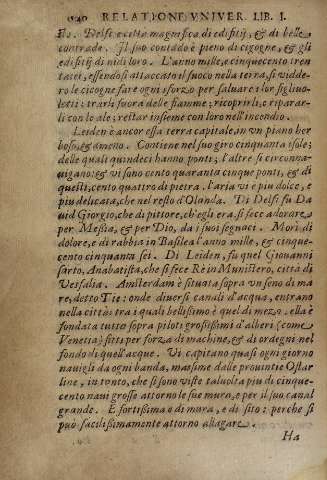 040 RELATIONE VNIVER. LIB. I.
Delft è città magnifica di edifitij, & di belle
contrade. Il suo contado è pieno di cigogne, & gli
edifitij di nidi loro. L'anno mille, e cinquecento tren
tasei, essendosi attaccato il fuoco nella terra, si vidde-
ro le cicogne fare ogni sforzo per saluare i lor figliuo-
letti; trarli fuora delle fiamme; ricoprirli, e ripara-
li con le ale; restar insieme con loro nell'incendio.
Leiden è ancor essa terra capitale, in vn piano her
boso, & ameno. Contiene nel suo giro cinquanta isole;
delle quali quindeci hanno ponti; l'altre si circonna-
uigano: & vi sono cento quaranta cinque ponti, & di
questi, cento quattro di pietra. l'aria vi è piu dolce, e
piu delicata, che nel resto d'Olanda. Di Delft fu Da
uid Giorgio, che di pittore, ch'egli era, si fece adorare,
per Messia, & per Dio, da i suoi seguaci. Morì di
dolore, e di rabbia in Basilea l'anno mille, & cinque-
cento cinquanta sei. Di Leiden, fu quel Giouanni
sarto, Anabatista, che si fece Rè in Munistero, città di
Vesfalia. Amsterdam è situata sopra vn seno di ma
re, detto Tie: onde diuersi canali d'acqua, entrano
nella città: tra i quali bellissimo è quel di mezo. ella è
fondata tutta sopra piloti grosissimi d'alberi (come
Venetia) fitti per forza di machine, & di ordegni nel
fondo di quell'acque. Vi capitano quasi ogni giorno
nauigli da ogni banda, massime dalle prouintie Ostar
line, in tanto, che si sono viste taluolta piu di cinque-
cento naui grosse attorno le sue mura, e per il suo canal
grande. E fortissima e di mura, e di sito: perche si
può facilissimamente attorno allagare.
Ha